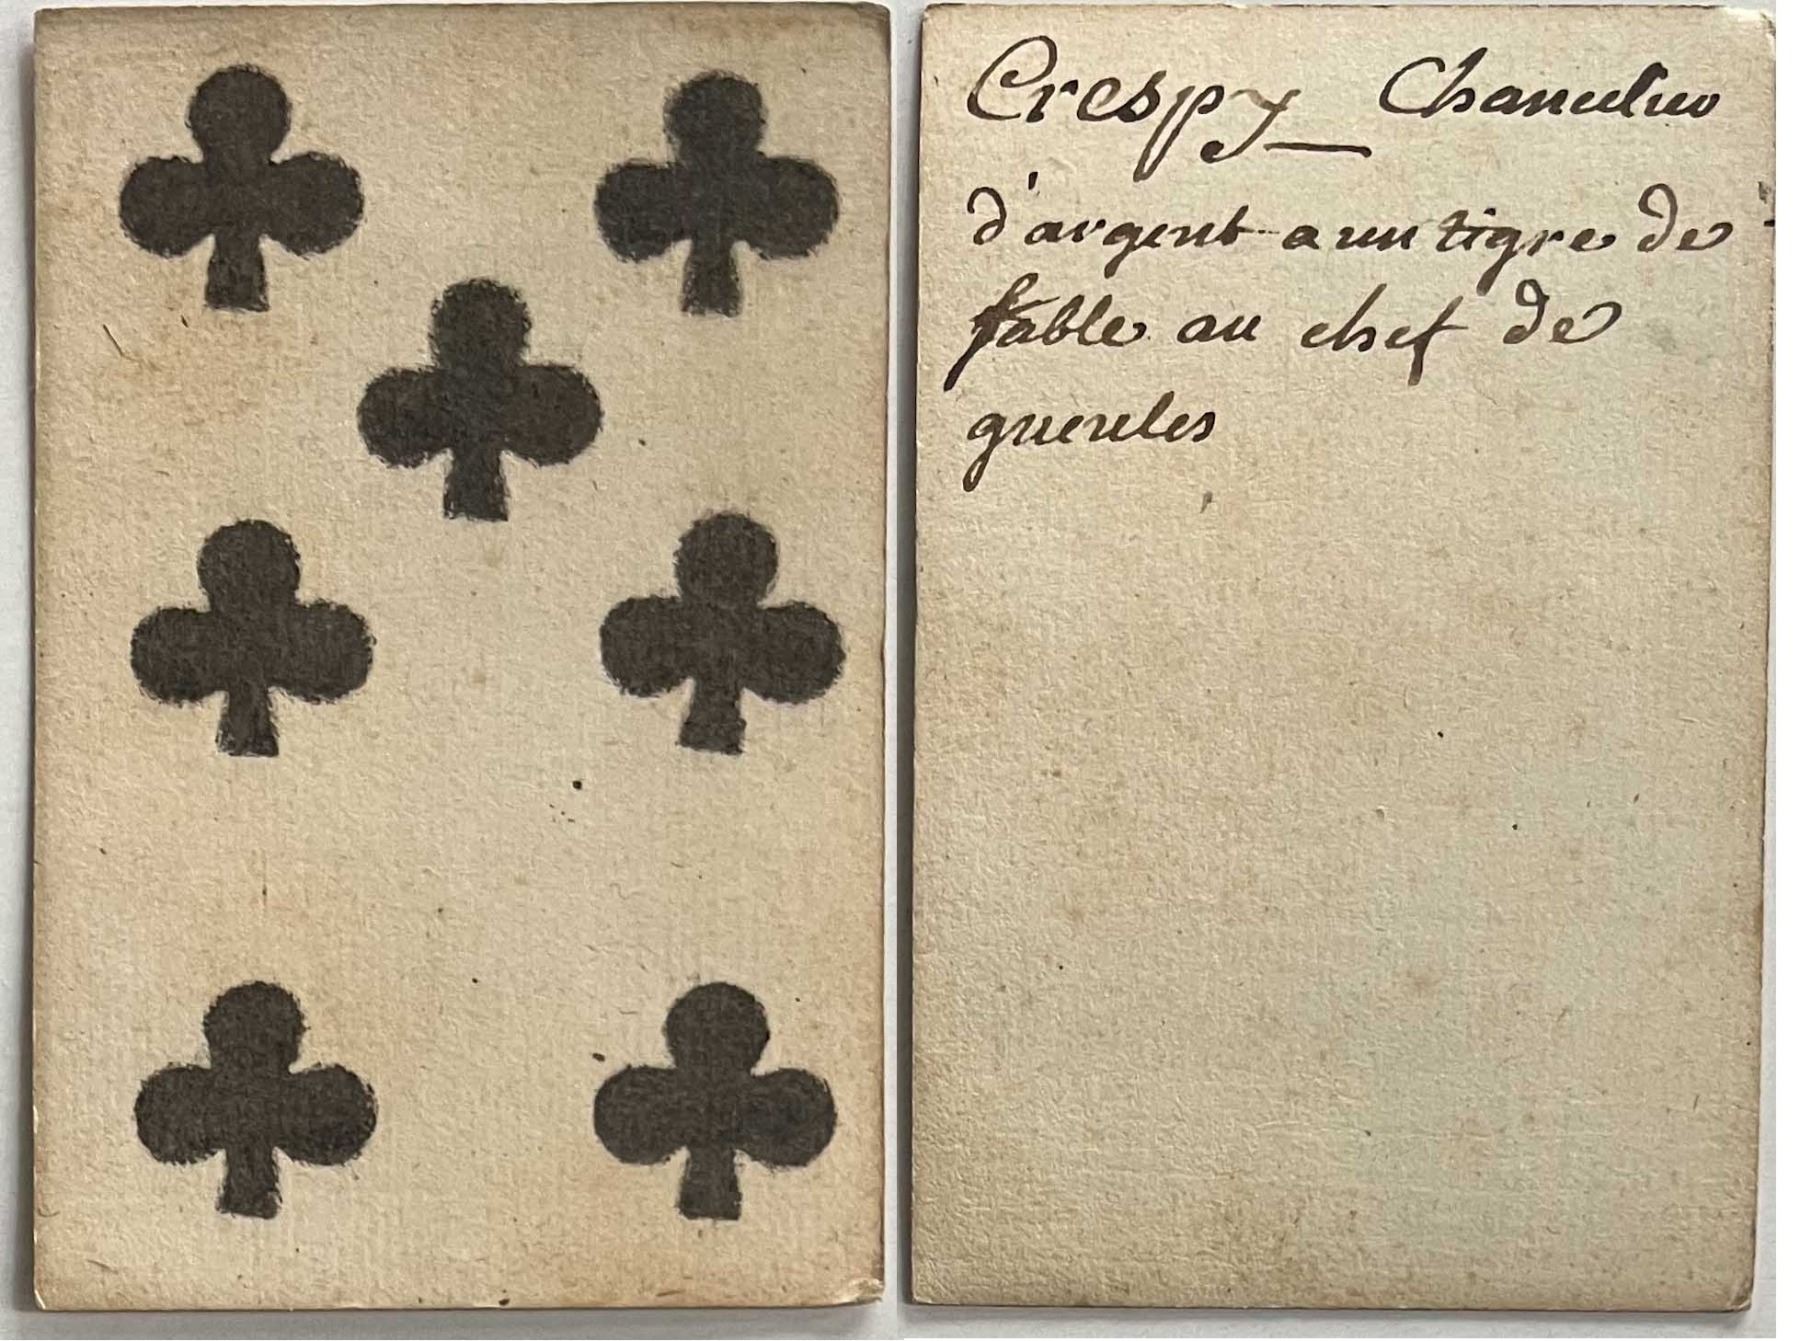 Crespy — Chanulieu
d'argent a un tigre de
sable au chef de
gueules